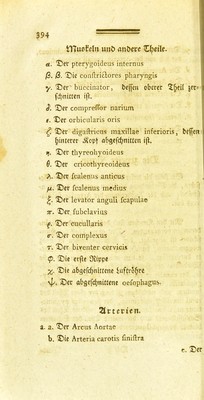 394
Muskeln und andere Theile.
α. Der pterygoideus internus
β. β. Die constrictores pharyngis
γ. Der buccinator, dessen oberer Theil zer-
schnitten ist.
δ. Der compressor narium
ε. Der orbicularis oris
ζ. Der digastricus maxillae inferioris, dessen
hinterer Kopf abgeschnitten ist.
η. Der thyreohyoideus
θ. Der cricothyreoideus
λ. Der scalenus anticus
μ. Der scalenus medius
ξ. Der levator anguli scapulae
π. Der subclavius
ϱ. Der cucullaris
σ. Der complexus
τ. Der biventer cervicis
φ. Die erste Rippe
χ. Die abgeschnittene Luftröhre
ψ. Der abgeschnittene oesophagus.
Arterien.
a. a. Der Arcus Aortae
b. Die Arteria carotis sinistra
c. Der